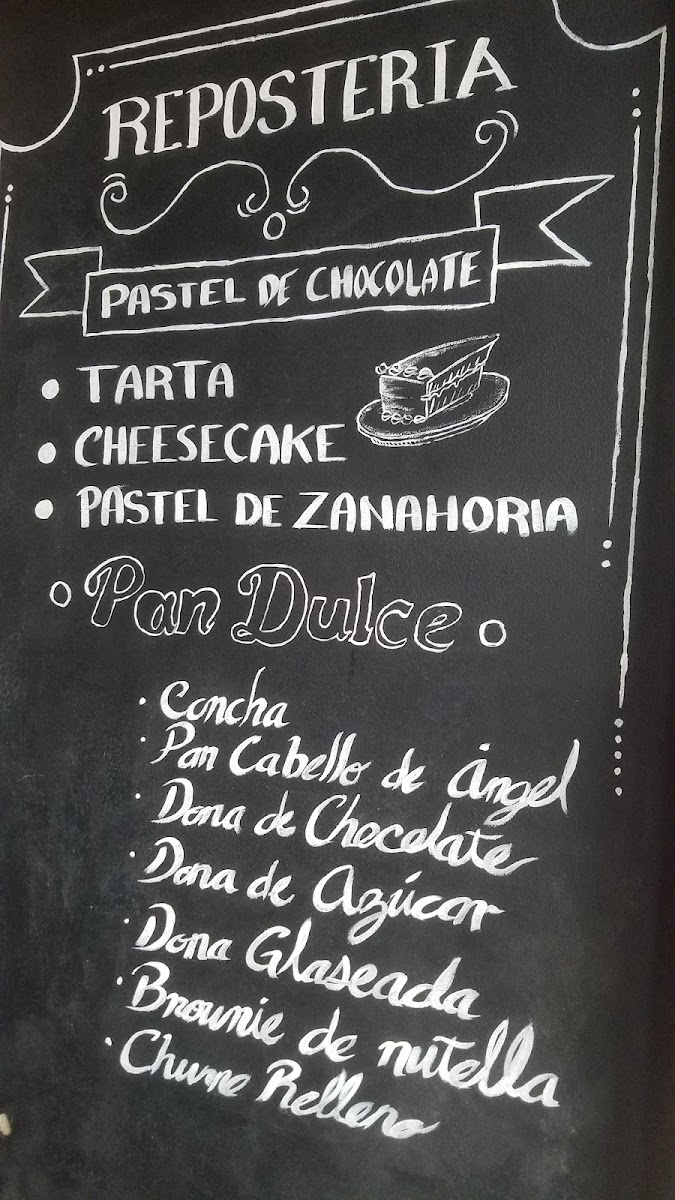 REPOSTERIA
PASTEL DE CHOCOLATE
• TARTA
• CHEESECAKE
• PASTEL DE ZANAHORIA
Pan Dulce
· Concha
· Pan Cabello de Ángel
· Dona de Chocolate
· Dona de Azúcar
· Dona Glaseada
· Brownie de nutella
· Churro Relleno